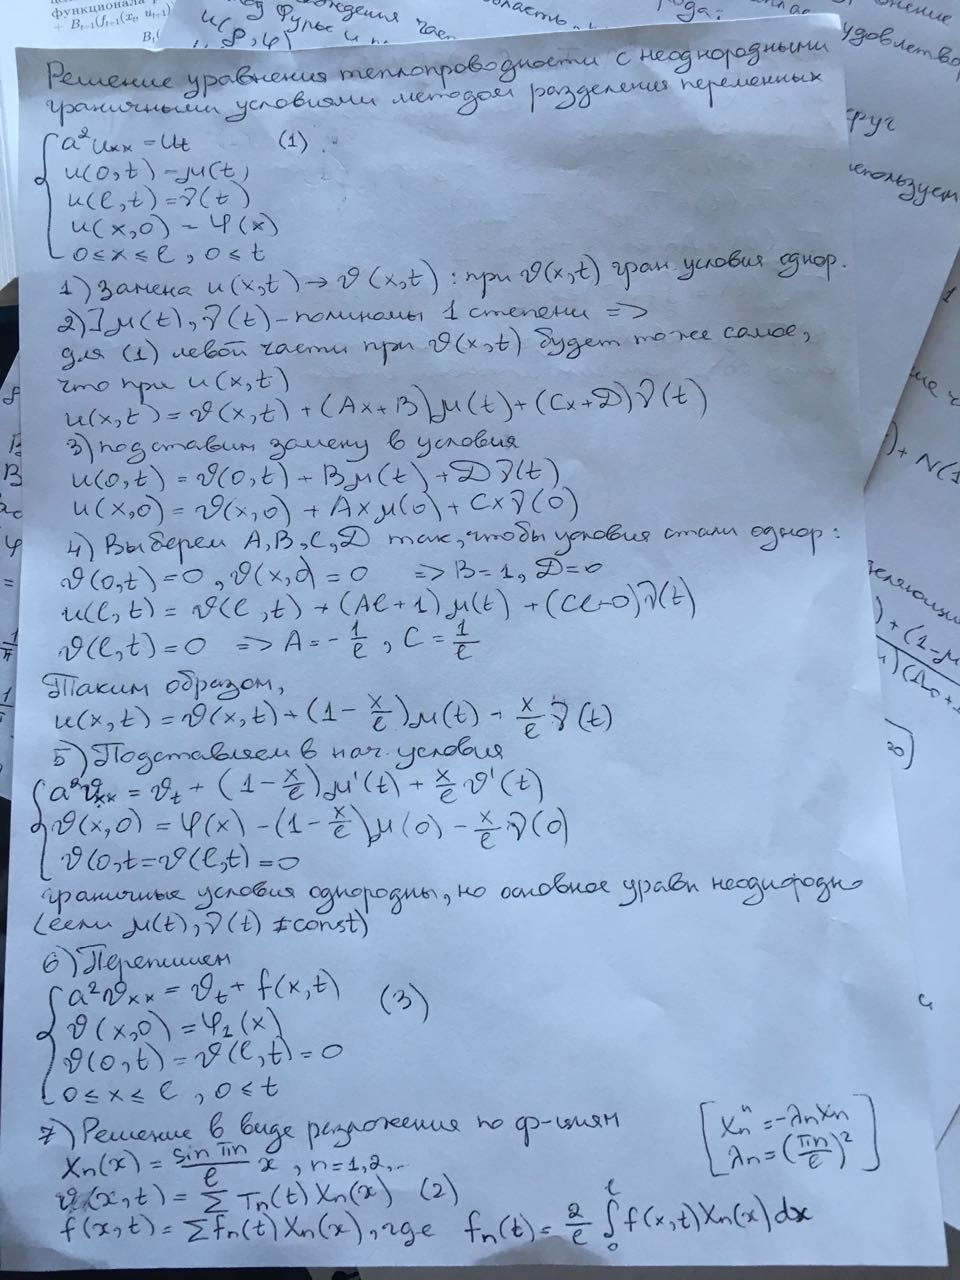 функционала
Решение уравнения теплопроводности с неоднородными
граничными условиями методом разделения переменных
a²uxx = ut (1)
u(0,t) = μ(t)
u(l,t) = ν(t)
u(x,0) = φ(x)
0≤x≤l, 0≤t
1) Замена u(x,t) → ϑ(x,t): при ϑ(x,t) гран. условия однор.
2) ] μ(t), ν(t) – полиномы 1 степени =>
для (1) левой части при ϑ(x,t) будет то же самое,
что при u(x,t)
u(x,t) = ϑ(x,t) + (Ax+B)μ(t) + (Cx+D)ν(t)
3) подставим замену в условия
u(0,t) = ϑ(0,t) + Bμ(t) + Dν(t)
u(x,0) = ϑ(x,0) + Axμ(0) + Cxν(0)
4) Выберем A, B, C, D так, чтобы условия стали однор:
ϑ(0,t)=0, ϑ(x,0)=0 => B=1, D=0
u(l,t) = ϑ(l,t) + (Al+1)μ(t) + (Cl+0)ν(t)
ϑ(l,t)=0 => A = -1/l, C = 1/l
Таким образом,
u(x,t) = ϑ(x,t) + (1 - x/l)μ(t) + x/l ν(t)
5) Подставляем в нач. условия
a²ϑxx = ϑt + (1 - x/l)μ'(t) + x/l ϑ'(t)
ϑ(x,0) = φ(x) - (1 - x/l)μ(0) - x/l ν(0)
ϑ(0,t=ϑ(l,t)=0
граничные условия однородны, но основное уравн неоднородно
(если μ(t), ν(t) ≠ const)
6) Перепишем
a²ϑxx = ϑt + f(x,t) (3)
ϑ(x,0) = φ1(x)
ϑ(0,t) = ϑ(l,t) = 0
0≤x≤l, 0≤t
7) Решение в виде разложения по ф-циям
[Xn'' = -λnXn
λn = (πn/l)²]
Xn(x) = sin πn/l x, n=1,2,..
ϑ(x,t) = ΣTn(t)Xn(x) (2)
f(x,t) = Σfn(t)Xn(x), где fn(t) = 2/l ∫₀ˡ f(x,t)Xn(x)dx
удовлетво
используем